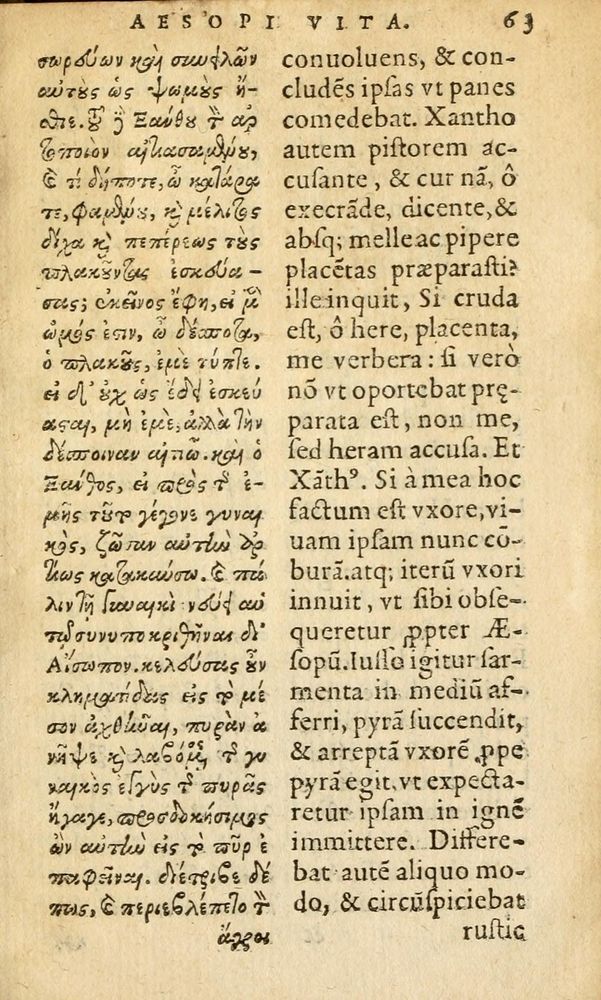 AESOPI VITA. 63
σωρδύων καὶ συνειλῶν
αὐτοὺς ὡς ψωμοὺς ἤ-
σθιε. τοῦ δὲ Ξάνθου τὸν ἀρ
τοποιὸν αἰτιασαμένου,
καὶ τί δήποτε, ὦ κατάρα
τε, φαμένου, καὶ μέλιτος
δίχα καὶ πεπέρεως τοὺς
πλακοῦντας ἐσκεύα-
σας; ἐκεῖνος ἔφη, εἰ μὲν
ὠμός ἐστιν, ὦ δέσποτα,
ὁ πλακοῦς, ἐμὲ τύπτε.
εἰ δ' οὐχ ὡς ἔδει ἐσκεύ
ασται, μὴ ἐμὲ, ἀλλὰ τὴν
δέσποιναν αἰτιῶ. καὶ ὁ
Ξάνθος, εἰ πρὸς τῆς ἐ-
μῆς τοῦτο γέγονε γυναι
κὸς, ζῶσαν αὐτὴν ἄρ
τίως κατακαύσω. καὶ πά
λιν τῇ γυναικὶ νεύει αὐ
τῷ συνυποκριθῆναι δι'
Αἴσωπον. κελεύσας οὖν
κληματίδας εἰς τὸ μέ
σον ἀχθῆναι, πυρὰν ἀ
νῆψε καὶ λαβόμενος τῆς γυ
ναικὸς ἐγγὺς τῆς πυρᾶς
ἤγαγε, προσδοκήσιμος
ὢν αὐτὴν εἰς τὸ πῦρ ἐ
παφεῖναι. διέτριβε δέ
πως, καὶ περιεβλέπετο τὸν
ἄγροι
conuoluens, & con-
cludẽs ipſas vt panes
comedebat. Xantho
autem piſtorem ac-
cuſante, & cur nã, ô
execrãde, dicente, &
abſq; melle ac pipere
placẽtas præparaſti?
ille inquit, Si cruda
eſt, ô here, placenta,
me verbera: ſi verò
nõ vt oportebat prę-
parata eſt, non me,
ſed heram accuſa. Et
Xãthꝰ. Si à mea hoc
factum eſt vxore, vi-
uam ipſam nunc cõ-
burã. atq; iterũ vxori
innuit, vt ſibi obſe-
queretur ꝓpter Æ-
ſopũ. Iuſſo igitur ſar-
menta in mediũ af-
ferri, pyrã ſuccendit,
& arreptã vxorẽ ꝓpe
pyrã egit, vt expecta-
retur ipſam in ignẽ
immittere. Differe-
bat autẽ aliquo mo-
do, & circũſpiciebat
ruſtic